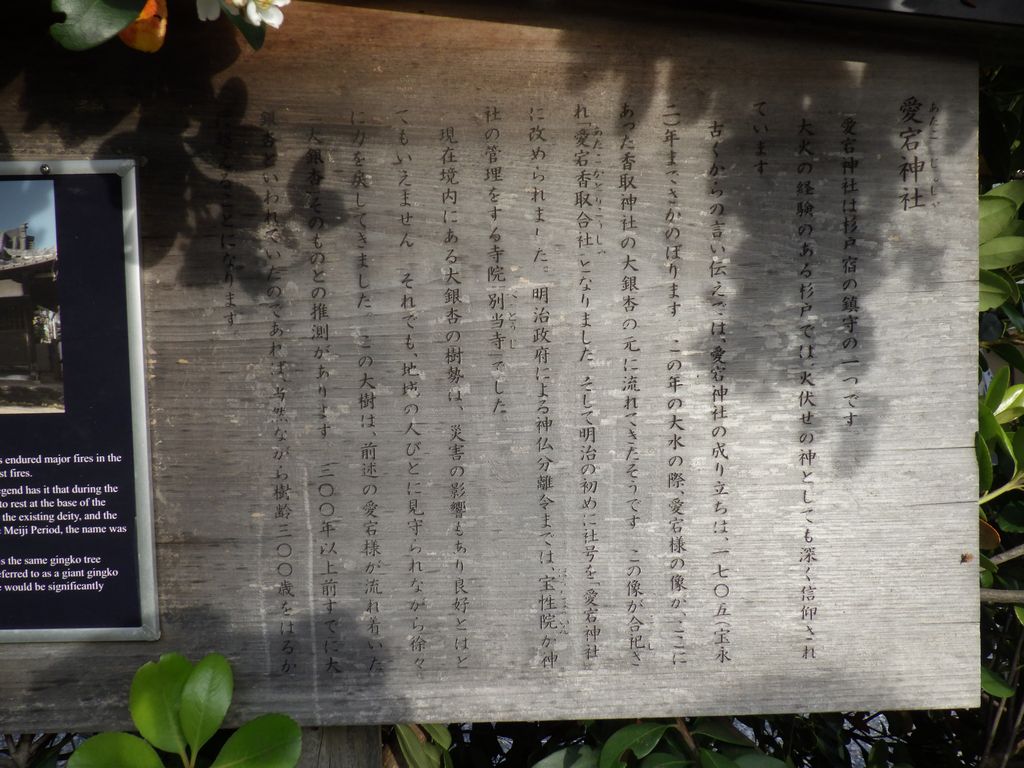 愛宕神社
あたこ じんじゃ
愛宕神社は杉戸宿の鎮守の一つです
大火の経験のある杉戸では、火伏せの神としても深く信仰され
ています
古くからの言い伝えでは、愛宕神社の成り立ちは、一七〇五(宝永
二)年までさかのぼります この年の大水の際、愛宕様の像が、ここに
あった香取神社の大銀杏の元に流れてきたそうです この像が合祀さ
れ「愛宕香取合社」となりました そして明治の初めに社号を「愛宕神社」
に改められました。明治政府による神仏分離令までは、宝性院が神
社の管理をする寺院「別当寺」でした
現在境内にある大銀杏の樹勢は、災害の影響もあり良好とはと
てもいえません それでも、地域の人びとに見守られながら徐々
に力を戻してきました。この大樹は、前述の愛宕様が流れ着いた
大銀杏そのものとの推測があります 三〇〇年以上前すでに大
銀杏といわれていたのであれば、当然ながら樹齢三〇〇歳をはるか
に超えることになります
s endured major fires in the
st fires.
egend has it that during the
to rest at the base of the
the existing deity, and the
Meiji Period, the name was
s the same gingko tree
eferred to as a giant gingko
would be significantly